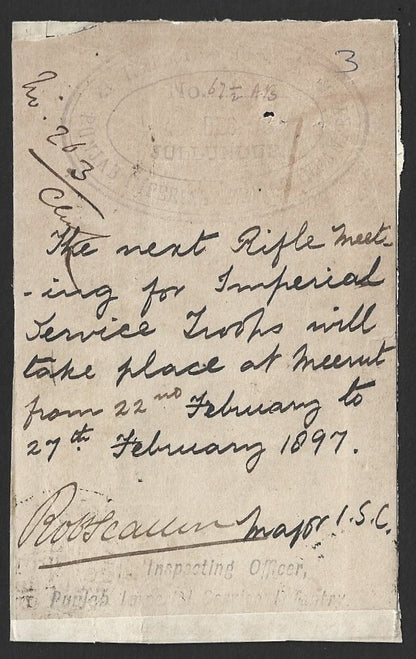 3
No. 67½ A.B
JULLUNDUR
PUNJAB
No. 263
The next Rifle Meet-
-ing for Imperial
Service Troops will
take place at Meerut
from 22nd February to
27th February 1897.
Major I.S.C.
Inspecting Officer,
Punjab Imperial Service Infantry